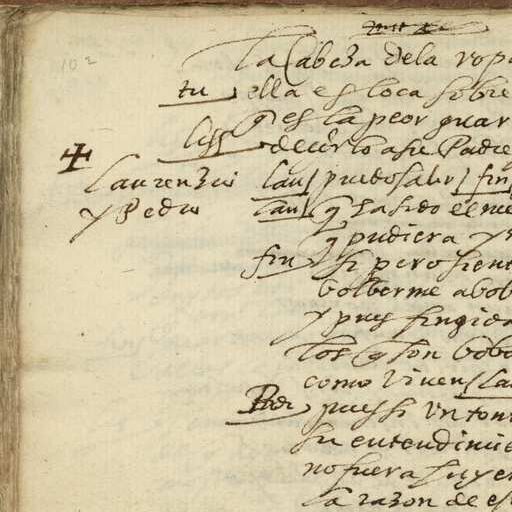 102
la Cabeza dela ropa
tu ella es loca sobre
q es la peor guar
liss decirlo a su Padre
Laurenzio lau puedo salir fin
y Pedro lau q ha sido el me
q pudiera
fin si pero sient
bolberme a bob
y pues fingida
los q son bobo
como viven La
Pe pues si un ton
su entendimie
no fuera suyo
la razon de es